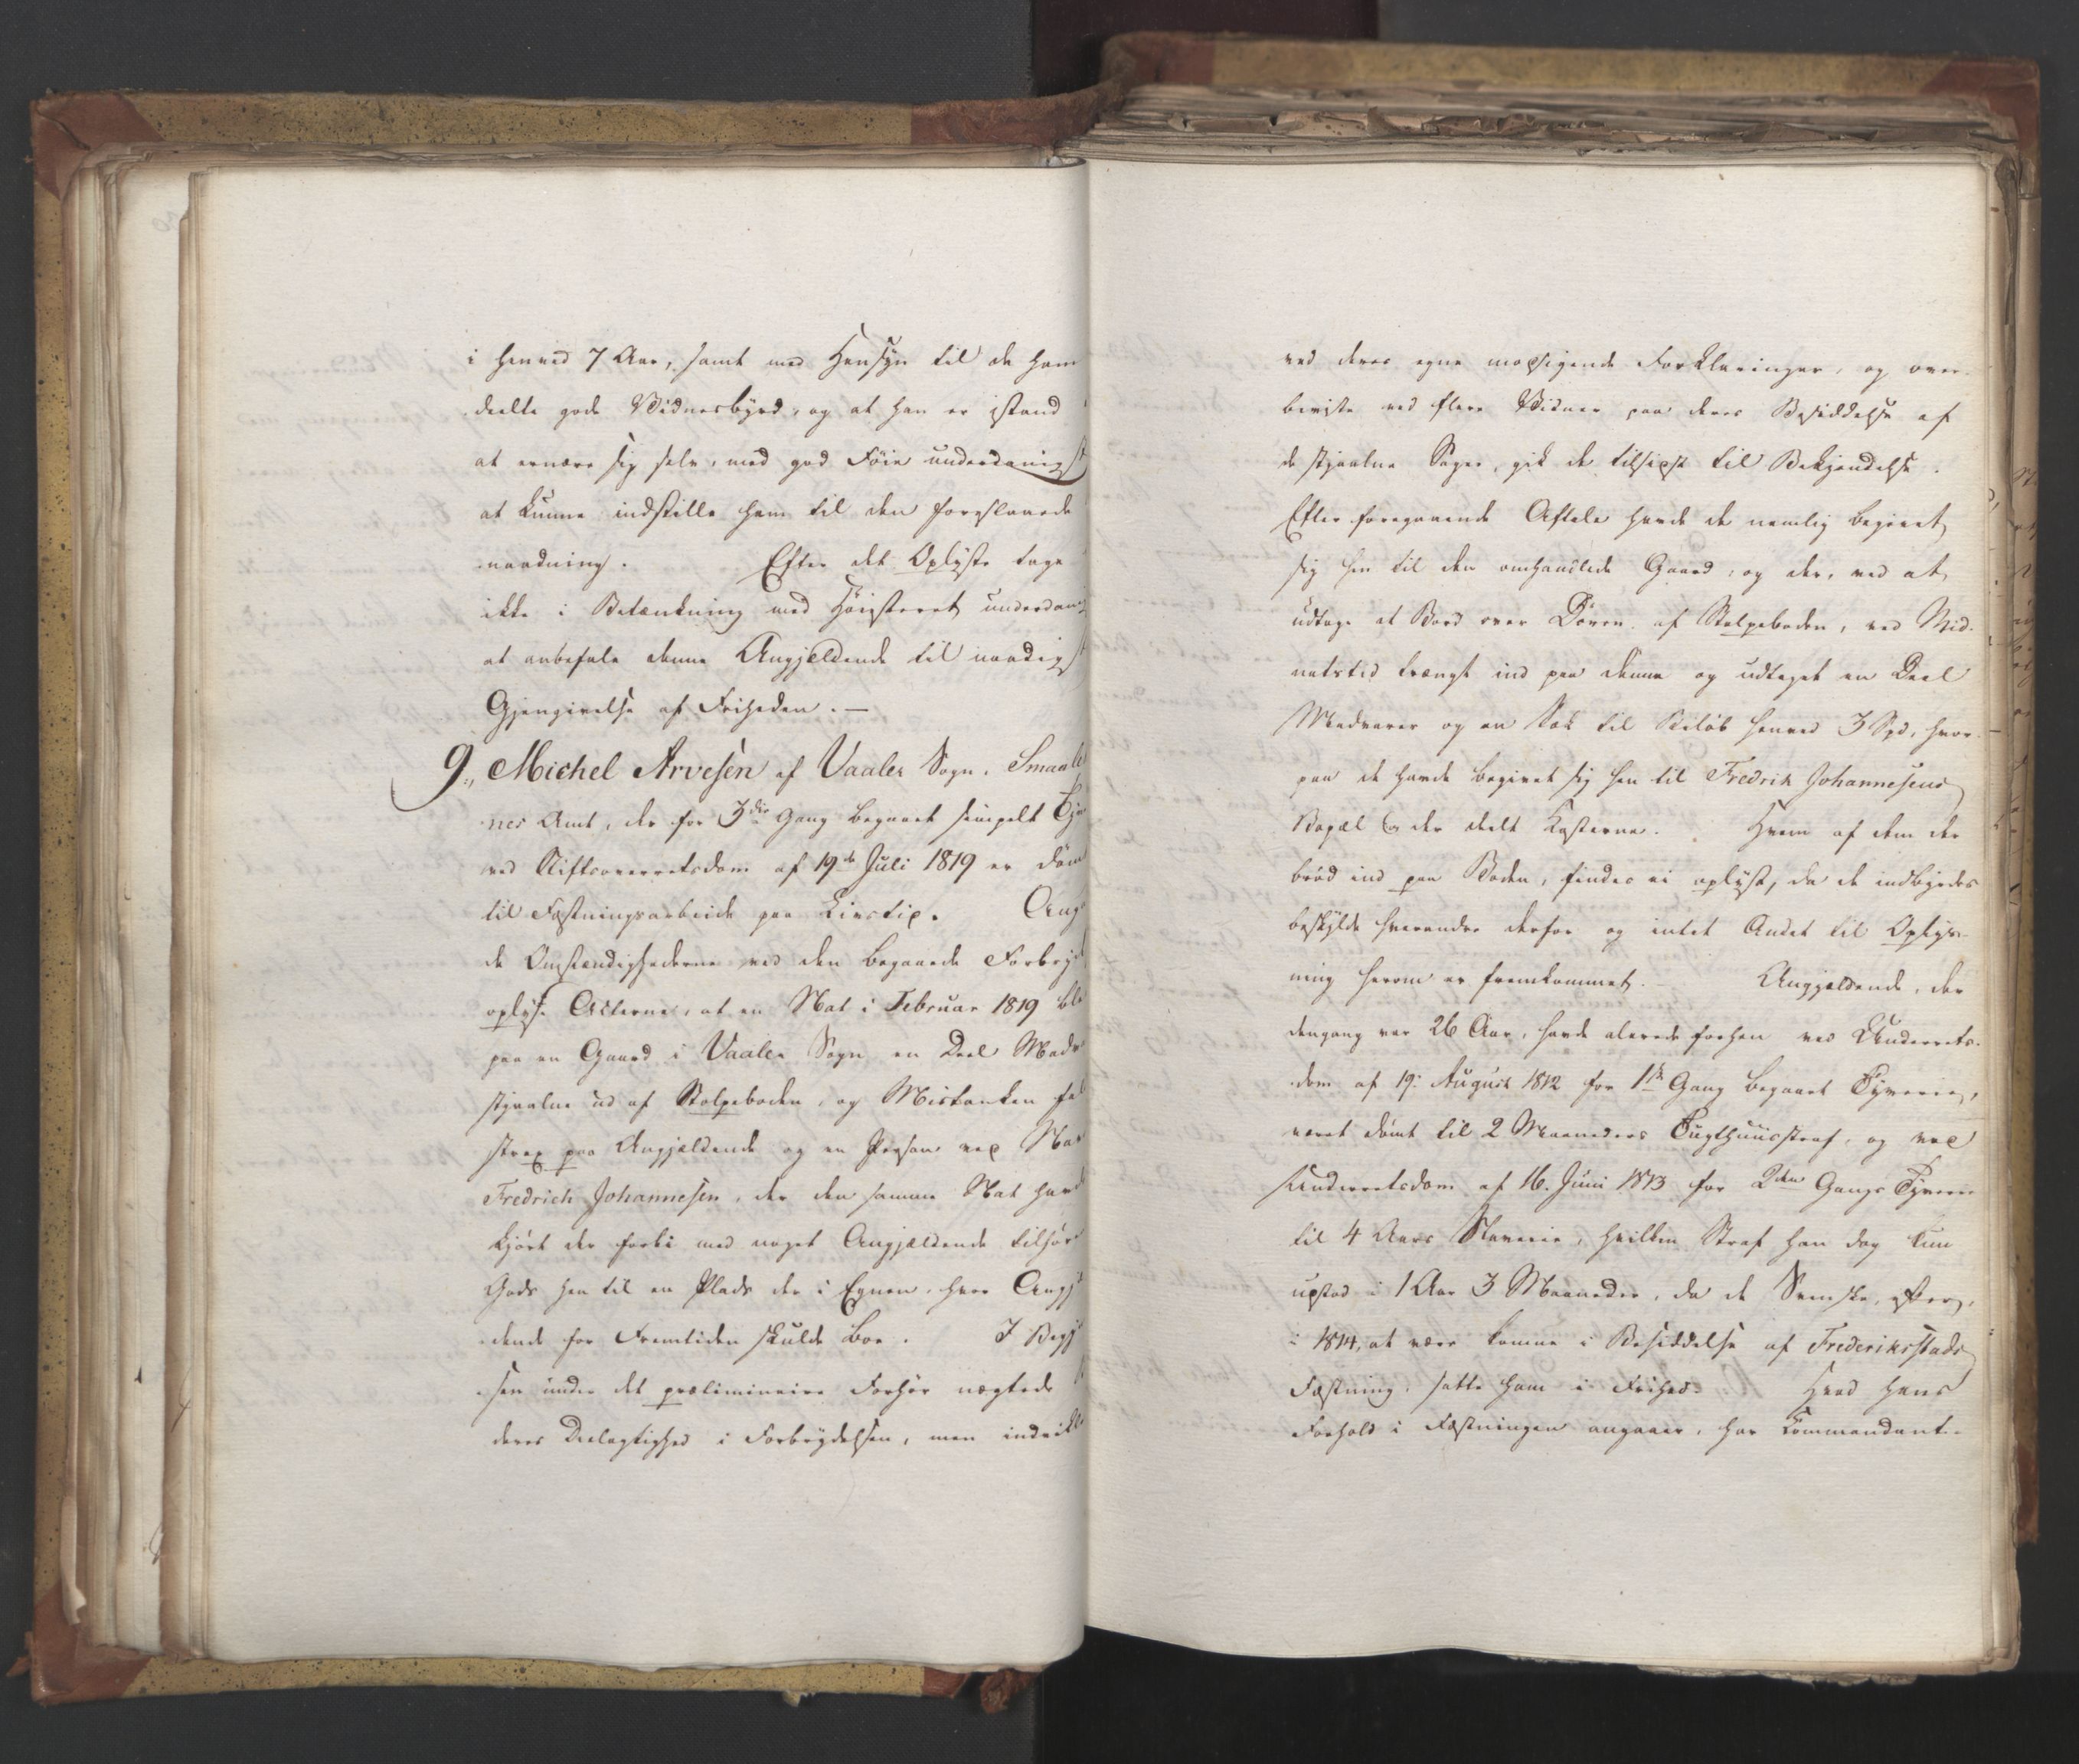 i henved 7 Aar, samt med Hensyn til de ham
deelte gode Vidnesbyrd, og at han er istand
at ernære sig selv, med god Føie underdanigst
at kunne indstille ham til den foreslaaede
naadning. Efter det Oplyste tage
ikke i Betænkning med Høiesteret underdanig
at anbefale denne Angjeldende til naadigst
Gjengivelse af Friheden. —
9., Michel Arvesen af Vaaler Sogn, Smaale
nes Amt, der for 3die Gang begaaet simpelt Tyv
ved Stiftsoverretsdom af 19de Juli 1819 er dømt
til Fæstningsarbeide paa Livstid. Ang
de Omstændighederne ved den begaaede Forbryd
oplyse Acterne, at en Nat i Februar 1819 ble
paa en Gaard i Vaaler Sogn en Deel Madv
stjaalne ud af Stolpeboden, og Mistanken fal
strax paa Angjældende og en Person ved Nav
Fredrich Johannesen, der den samme Nat havde
kjørt der forbi med noget Angjældende tilhøre
Gods hen til en Plads der i Egnen, hvor Angj
dende for Fremtiden skulde boe. I Begy
sen under det præliminaire Forhør nægtede
deres Deelagtighed i Forbrydelsen, men indvikl
ved deres egne modsigende Forklaringer, og over-
beviste ved flere Vidner paa deres Besiddelse af
de stjaalne Sager, gik de tilsidst til Bekjendelse.
Efter foregaaende Aftale havde de nemlig begivet
sig hen til den omhandlede Gaard, og der, ved at
udtage et Bord over Døren af Stolpeboden, ved Mid-
natstid trængt ind paa denne og udtaget en Deel
Madvarer og en Sæk til Beløb henved 3 Spd, hvor-
paa de havde begivet sig hen til Fredrik Johannesens
Bopæl og der deelt Kosterne. Hvem af dem der
brød ind paa Boden, findes ei oplyst, da de indbyrdes
beskylde hverandre derfor og intet Andet til Oplys-
ning herom er fremkommet. Angjældende, der
dengang var 26 Aar, havde alerede forhen ved Underrets-
dom af 19: August 1812 for 1ste Gang begaaet Tyverie,
været dømt til 2 Maaneders Tugthuusstraf, og ved
Underretsdom af 16. Juni 1813 for 2den Gangs Tyverie
til 4 Aars Slaverie, hvilken Straf han dog kun
udstod i 1 Aar 3 Maaneder, da de Svenske, efter,
i 1814, at være komne i Besiddelse af Frederiksstads
Fæstning, satte ham i Frihed. Hvad hans
Forhold i Fæstningen angaaer, har Commandant-